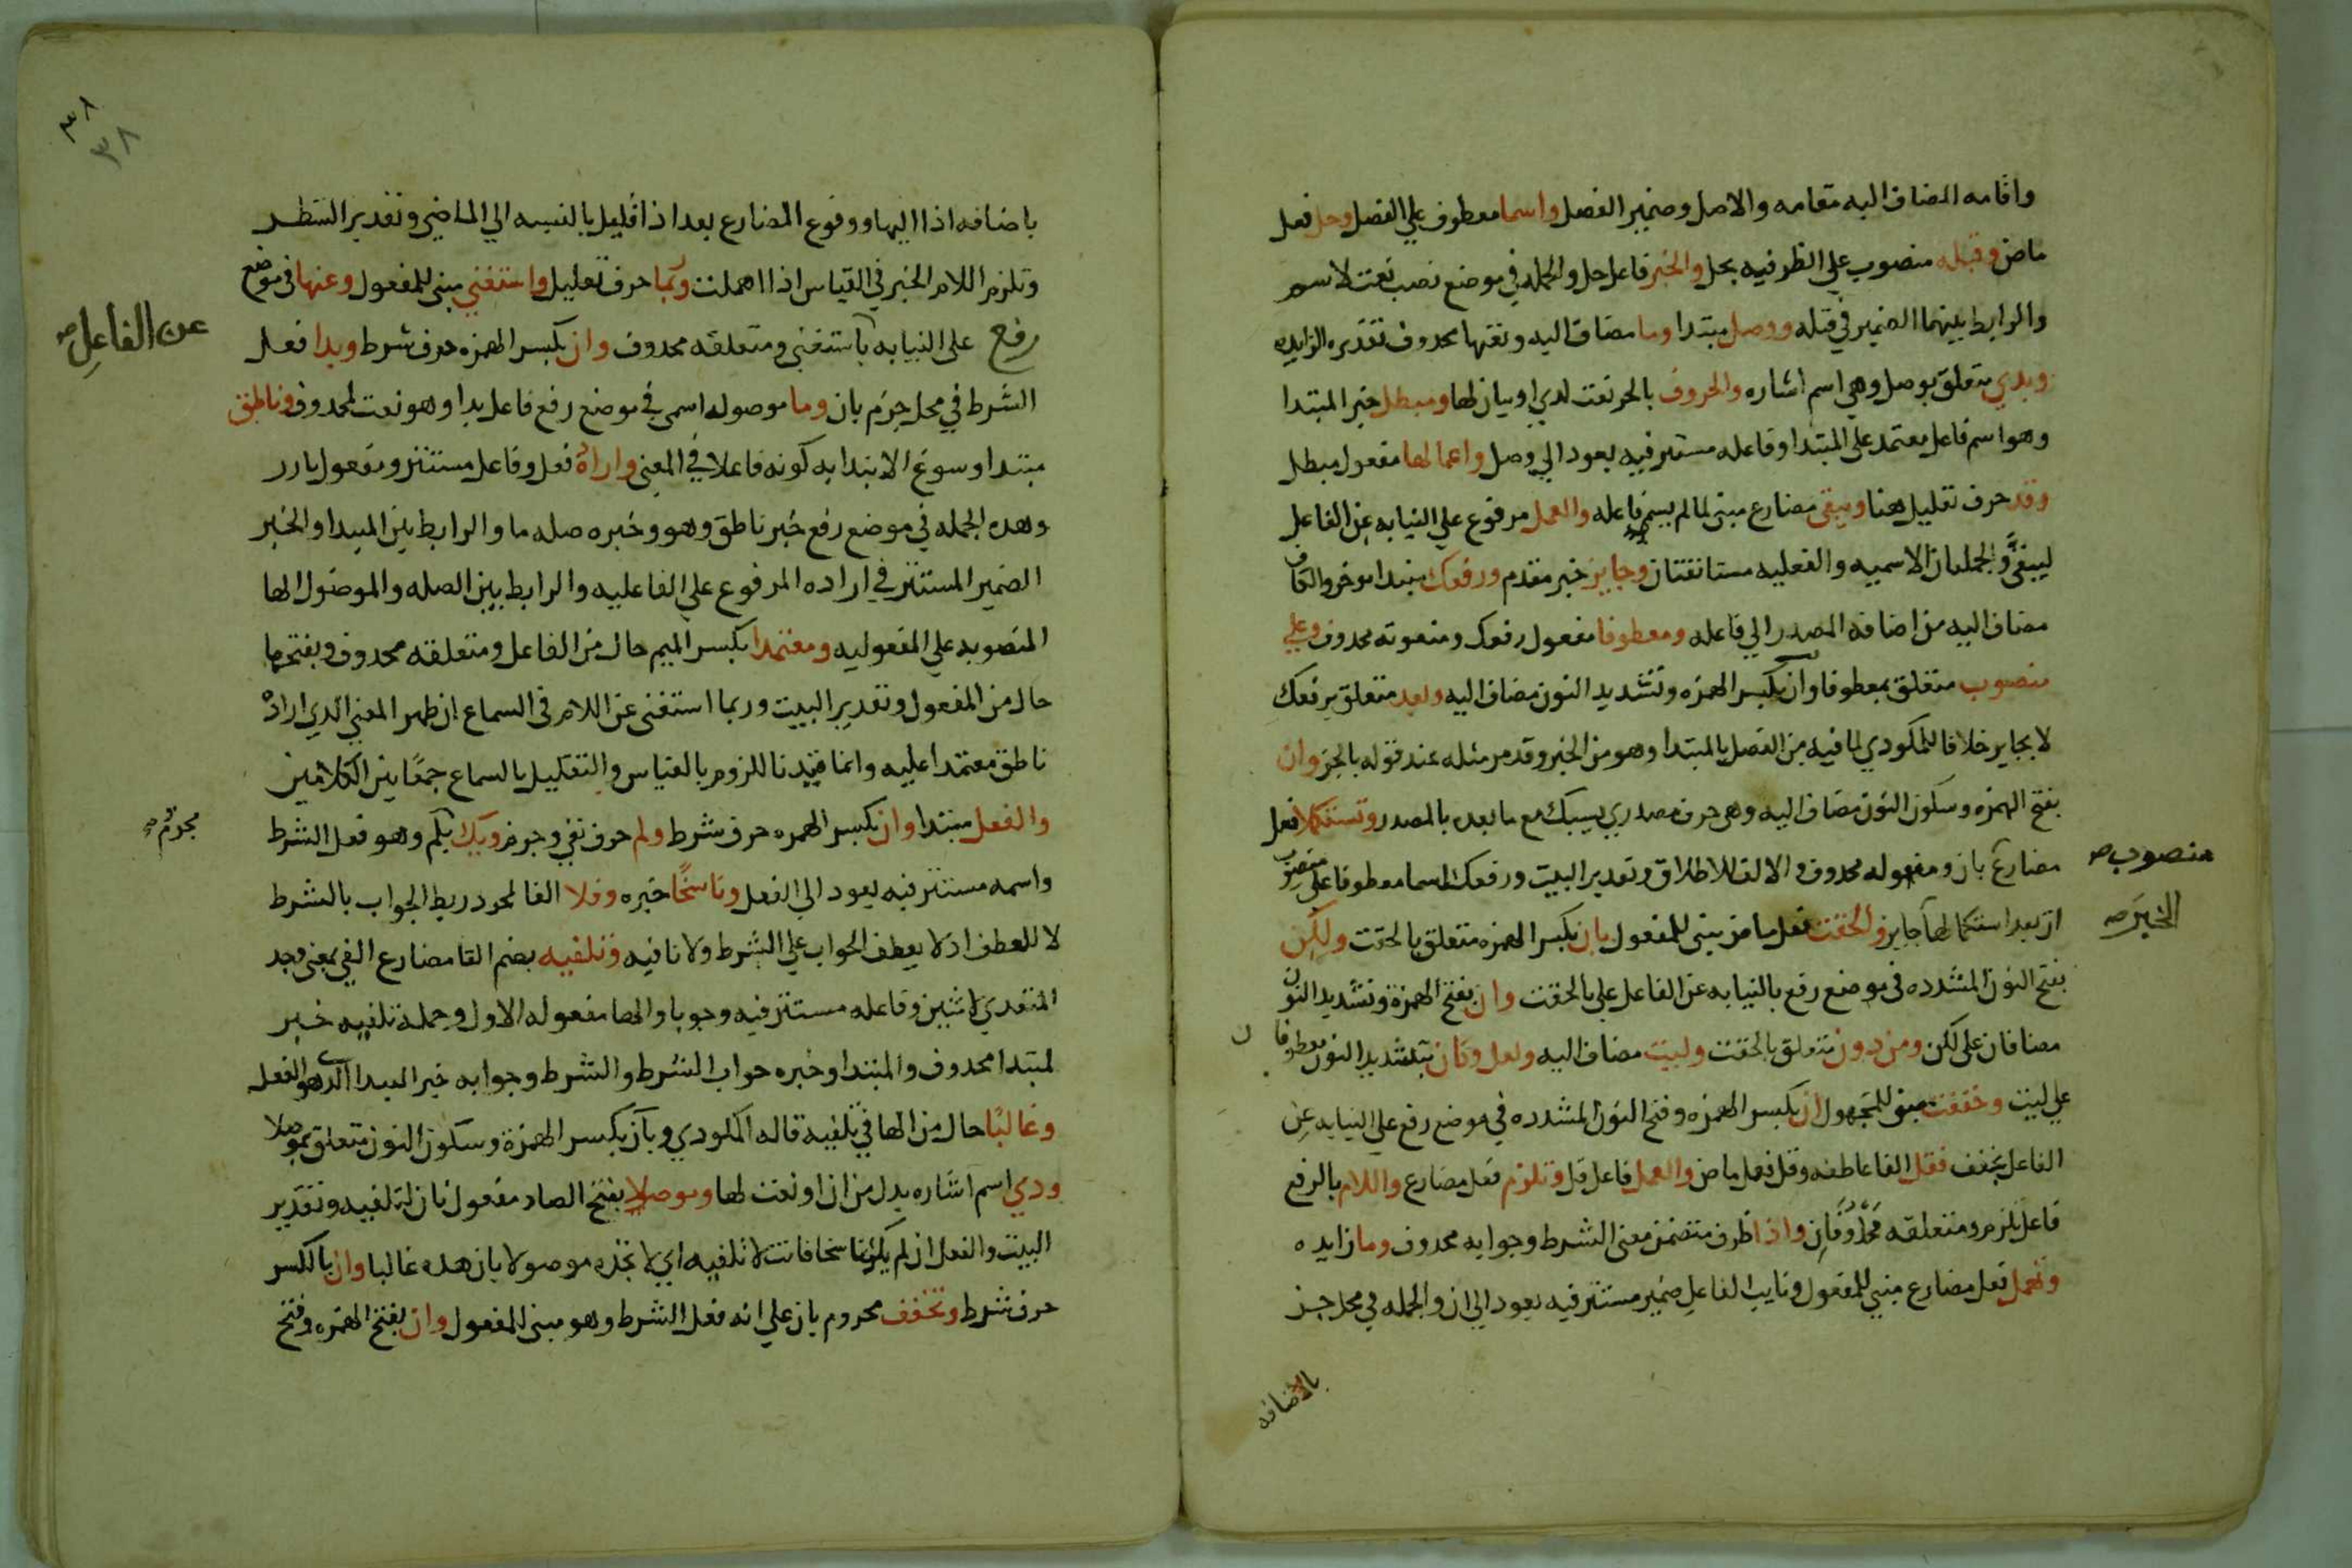 واقامه المضاف اليه مقامه والاصل وضمير الفصل واسما معطوف علي الفصل وحل فعل
ماض وقبله منصوب علي الظرفيه بحل والخبر فاعل حل والجمله في موضع نصب نعت لاسم
والرابط بينهما الضمير في قبله ووصل مبتدا وما مضاف اليه ونعتها محدوف تقديره الزايده
وبدي متعلق بوصل وهي اسم اشاره والحروف بالجر نعت لدي او بيان لها ومبطل خبر المبتدا
وهو اسم فاعل معتمد علي المبتدا وفاعله مستتر فيه يعود الي وصل واعمالها مفعول مبطل
وقد حرف تقليل هنا ويبقي مضارع مبني لما لم يسم فاعله والعمل مرفوع علي النيابه عن الفاعل
ليبقي والجملتان الاسميه والفعليه مستانفتان وجايز خبر مقدم ورفعك مبتدا موخر والكاف
مضاف اليه من اضافه المصدر الي فاعله ومعطوفا مفعول رفعك ومنعوته محدوف وعلي
منصوب متعلق بمعطوفا وان بكسر الهمزه وتشديد النون مضاف اليه وبعد متعلق برفعك
لا بجايز خلافا للمكودي لما فيه من الفصل بالمبتدا وهو من الخبر وقد مر مثله عند قوله بالجر وان
بفتح الهمزه وسكون النون مضاف اليه وهي حرف مصدري يسبك مع ما بعده بالمصدر وتستكملا فعل
مضارع بان ومفعوله محدوف والالف للاطلاق وتقدير البيت ورفعك اسما معطوفا علي منصوب
منصوب صح
ان بعد استكمالها جايز والحقت فعل ماض مبني للمفعول بان بكسر الهمزه متعلق بالحقت ولكن
الخبر صح
بفتح النون المشدده في موضع رفع بالنيابه عن الفاعل علي بالحقت وان بفتح الهمزة وتشديد النون
مضافان علي لكن ومن دون متعلق بالحقت وليت مضاف اليه ولعل وكان بتشديد النون معطوفان
علي ليت وخففت مبني للمجهول ان بكسر الهمزه وفتح النون المشدده في موضع رفع علي النيابه عن
الفاعل بخفف فقل الفا عاطفه وقل فعل ماض والعمل فاعل قل وتلزم فعل مضارع واللام بالرفع
فاعل تلزم ومتعلقه محدوفان واذا ظرف متضمن معني الشرط وجوابه محدوف وما زايده
وتهمل فعل مضارع مبني للمفعول ونايب الفاعل ضمير مستتر فيه يعود الي ان والجمله في محل جر
بالاضافه
٣٨
٣٨
باضافه اذا اليها ووقوع المضارع بعد اذا قليل بالنسبه الي الماضي وتقدير الشطر
وتلزم اللام الخبر في القياس اذا اهملت وربما حرف تقليل واستغني مبني للمفعول وعنها في موضع
رفع علي النيابه باستغني ومتعلقه محدوف وان بكسر الهمزه حرف شرط وبدا فعل
عن الفاعل صح
الشرط في محل جزم بان وما موصول اسمي في موضع رفع فاعل بدا وهو نعت لمحدوف وناطق
مبتدا وسوغ الابتدا به كونه فاعلا في المعني واراده فعل وفاعل مستتر ومفعول بارز
وهده الجمله في موضع رفع خبر ناطق وهو وخبره صله ما والرابط بين المبتدا والخبر
الضمير المستتر في اراده المرفوع علي الفاعليه والرابط بين الصله والموصول الها
المنصوبه علي المفعوليه ومعتمدا بكسر الميم حال من الفاعل ومتعلقه محدوف وبفتحها
حال من المفعول وتقدير البيت وربما استغني عن اللام في السماع ان ظهر المعني الدي اراده
ناطق معتمدا عليه وانما قيدنا اللزوم بالقياس والتقليل بالسماع جمعا بين الكلامين
والفعل مبتدا وان بكسر الهمزه حرف شرط ولم حرف نفي وجزم ويك بلم وهو فعل الشرط
مجزوم صح
واسمه مستتر فيه يعود الي الفعل وناسخا خبره وفلا الفا لمجرد ربط الجواب بالشرط
لا للعطف اد لا يعطف الجواب علي الشرط ولا نافيه وتلفيه بضم التا مضارع الفي بمعني وجد
المتعدي لاثنين وفاعله مستتر فيه وجوبا والها مفعوله الاول وجمله تلفيه خبر
لمبتدا محدوف والمبتدا وخبره جواب الشرط والشرط وجوابه خبر المبتدا الدي هو الفعل
وغالبا حال من الها في تلفيه قاله المكودي وبان بكسر الهمزة وسكون النون متعلق بموصلا
ودي اسم اشاره بدل من ان او نعت لها وموصلا بفتح الصاد مفعول ثان لتلفيه وتقدير
البيت والفعل ان لم يكن ناسخا فانت لا تلفيه اي لا تجده موصولا بان هده غالبا وان بالكسر
حرف شرط وتخفف مجزوم بان علي انه فعل الشرط وهو مبني للمفعول وان بفتح الهمزه وفتح